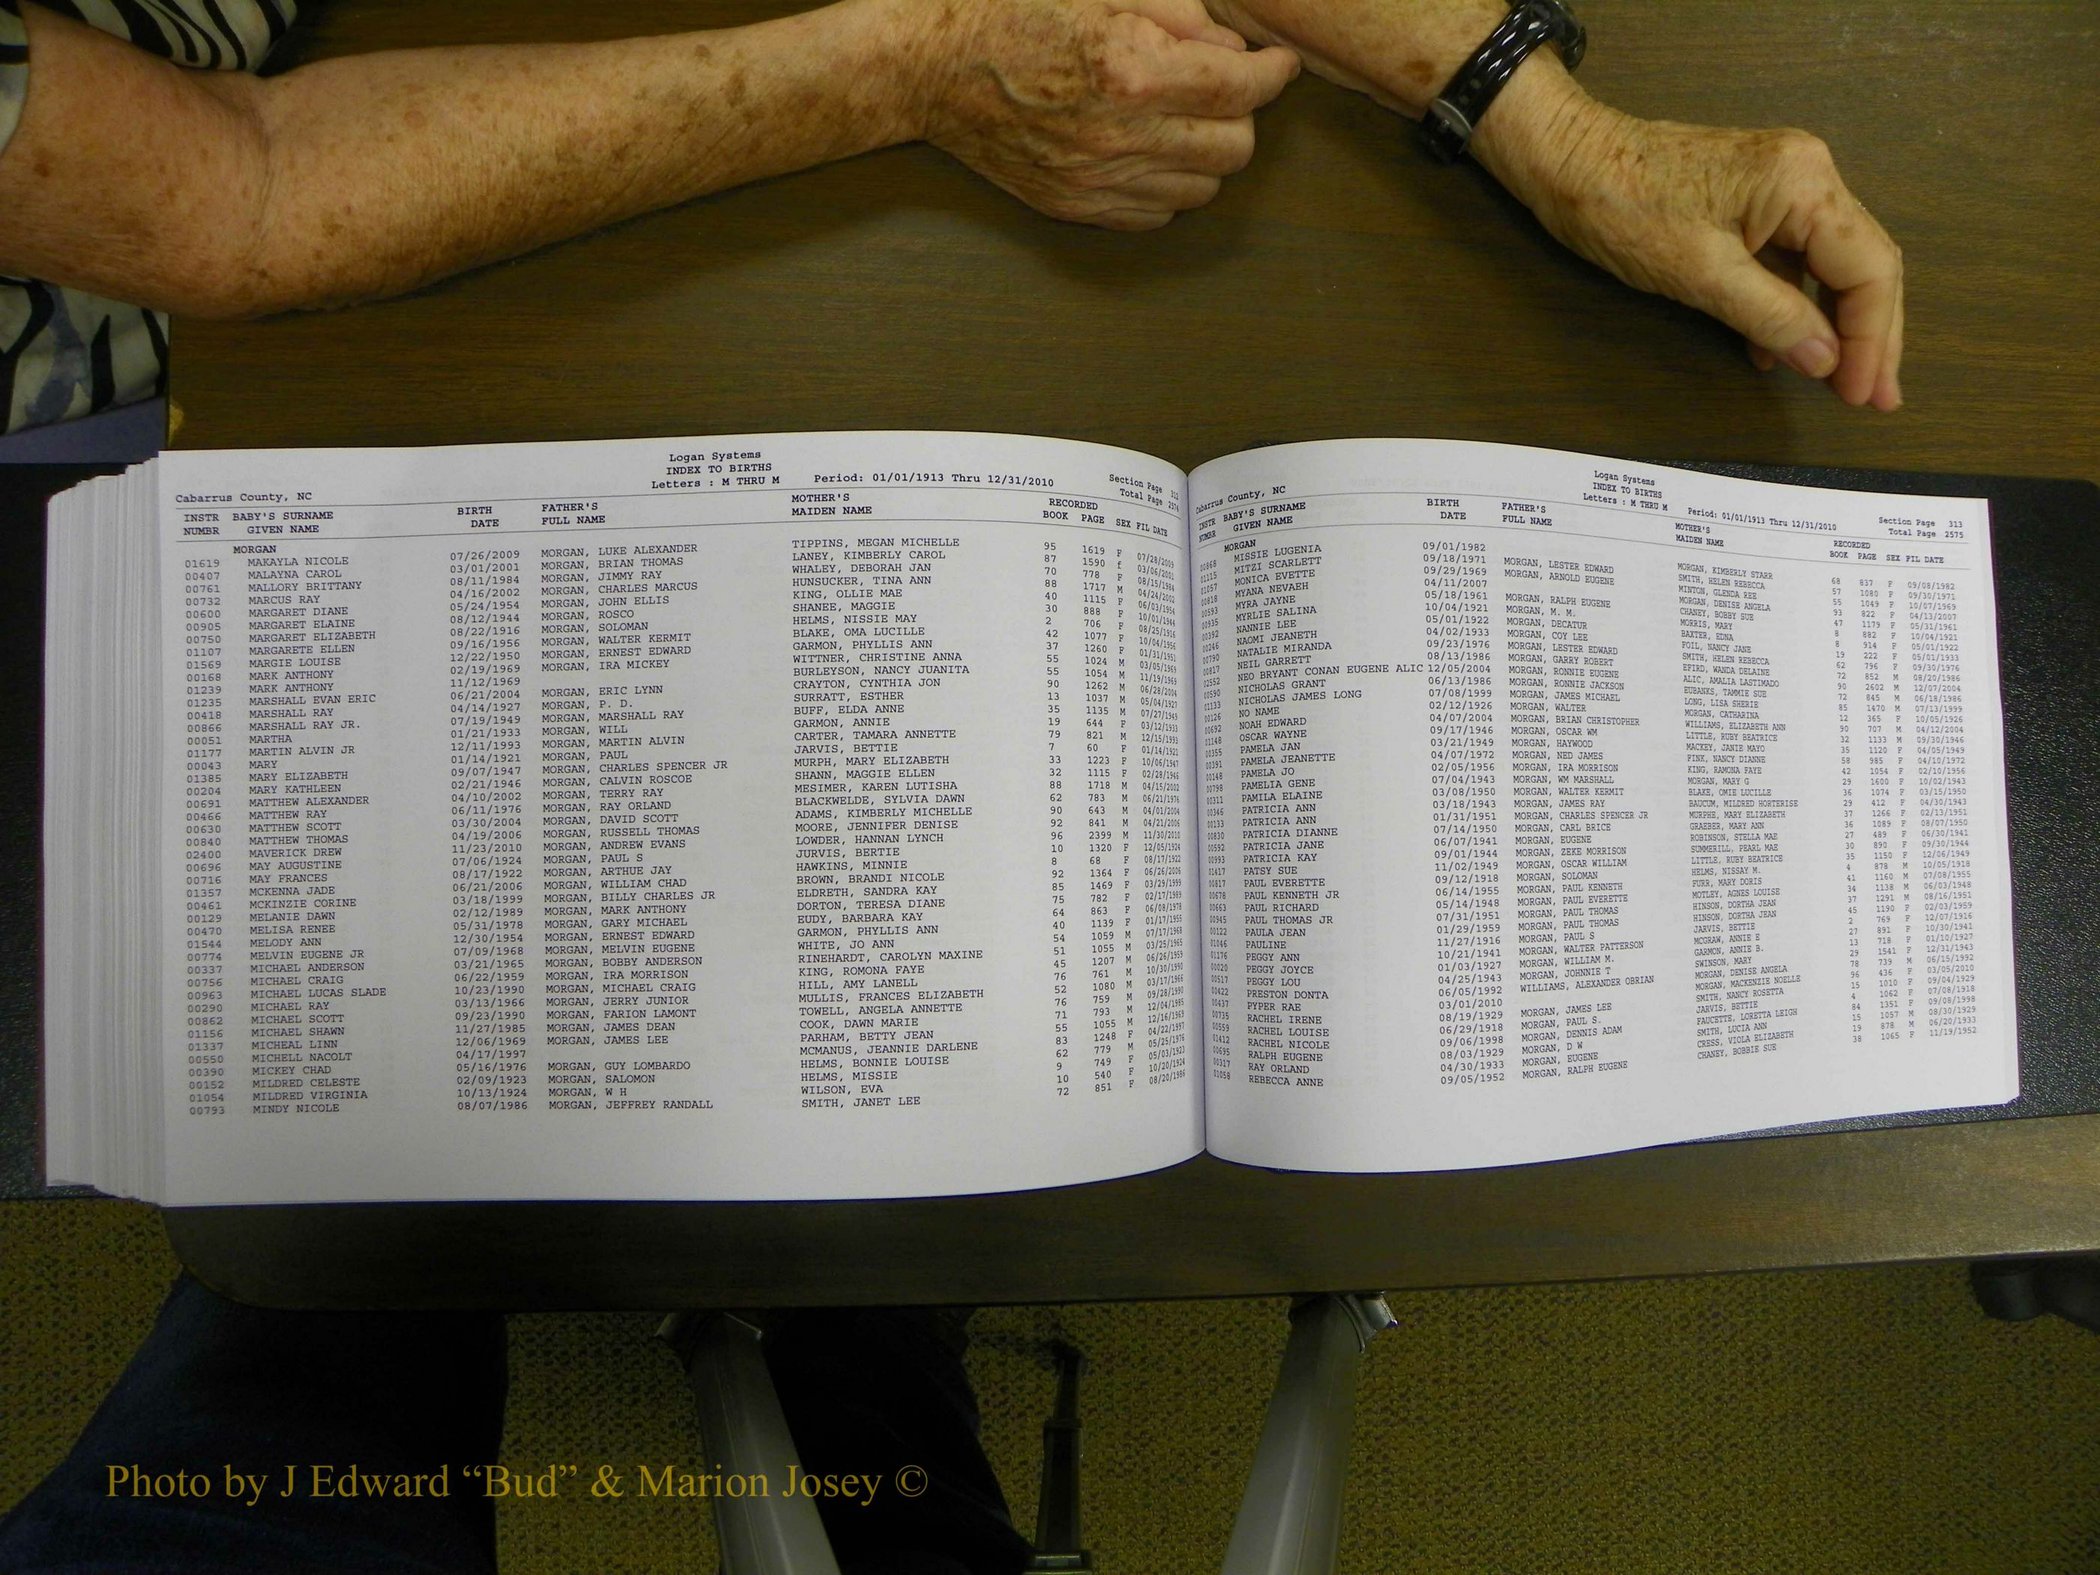 Logan Systems
INDEX TO BIRTHS
Letters : M THRU M
Period: 01/01/1913 Thru 12/31/2010
Cabarrus County, NC
Section Page 312
Total Page 2574
INSTR BABY'S SURNAME BIRTH FATHER'S MOTHER'S RECORDED
NUMBR GIVEN NAME DATE FULL NAME MAIDEN NAME BOOK PAGE SEX FIL DATE
MORGAN
01619 MAKAYLA NICOLE 07/26/2009 MORGAN, LUKE ALEXANDER TIPPINS, MEGAN MICHELLE 95 1619 F 07/28/2009
00407 MALAYNA CAROL 03/01/2001 MORGAN, BRIAN THOMAS LANEY, KIMBERLY CAROL 87 1590 f 03/06/2002
00761 MALLORY BRITTANY 08/11/1984 MORGAN, JIMMY RAY WHALEY, DEBORAH JAN 70 778 F 08/15/1984
00732 MARCUS RAY 04/16/2002 MORGAN, CHARLES MARCUS HUNSUCKER, TINA ANN 88 1717 M 04/24/2002
00600 MARGARET DIANE 05/24/1954 MORGAN, JOHN ELLIS KING, OLLIE MAE 40 1115 F 06/03/1954
00905 MARGARET ELAINE 08/12/1944 MORGAN, ROSCO SHANEE, MAGGIE 30 888 F 10/01/1944
00750 MARGARET ELIZABETH 08/22/1916 MORGAN, SOLOMAN HELMS, NISSIE MAY 2 706 F 08/25/1916
01107 MARGARETE ELLEN 09/16/1956 MORGAN, WALTER KERMIT BLAKE, OMA LUCILLE 42 1077 F 10/04/1956
01569 MARGIE LOUISE 12/22/1950 MORGAN, ERNEST EDWARD GARMON, PHYLLIS ANN 37 1260 F 01/31/1951
00168 MARK ANTHONY 02/19/1969 MORGAN, IRA MICKEY WITTNER, CHRISTINE ANNA 55 1024 M 03/05/1969
01239 MARK ANTHONY 11/12/1969 BURLEYSON, NANCY JUANITA 55 1054 M 11/19/1969
01235 MARSHALL EVAN ERIC 06/21/2004 MORGAN, ERIC LYNN CRAYTON, CYNTHIA JON 90 1262 M 06/28/2004
00418 MARSHALL RAY 04/14/1927 MORGAN, P. D. SURRATT, ESTHER 13 1037 M 05/04/1927
00866 MARSHALL RAY JR. 07/19/1949 MORGAN, MARSHALL RAY BUFF, ELDA ANNE 35 1135 M 07/27/1949
00051 MARTHA 01/21/1933 MORGAN, WILL GARMON, ANNIE 19 644 F 03/12/1933
01177 MARTIN ALVIN JR 12/11/1993 MORGAN, MARTIN ALVIN CARTER, TAMARA ANNETTE 79 821 M 12/15/1993
00043 MARY 01/14/1921 MORGAN, PAUL JARVIS, BETTIE 7 60 F 01/14/1921
01385 MARY ELIZABETH 09/07/1947 MORGAN, CHARLES SPENCER JR MURPH, MARY ELIZABETH 33 1223 F 10/06/1947
00204 MARY KATHLEEN 02/21/1946 MORGAN, CALVIN ROSCOE SHANN, MAGGIE ELLEN 32 1115 F 02/28/1946
00691 MATTHEW ALEXANDER 04/10/2002 MORGAN, TERRY RAY MESIMER, KAREN LUTISHA 88 1718 M 04/15/2002
00466 MATTHEW RAY 06/11/1976 MORGAN, RAY ORLAND BLACKWELDE, SYLVIA DAWN 62 783 M 06/21/1976
00630 MATTHEW SCOTT 03/30/2004 MORGAN, DAVID SCOTT ADAMS, KIMBERLY MICHELLE 90 643 M 04/01/2004
00840 MATTHEW THOMAS 04/19/2006 MORGAN, RUSSELL THOMAS MOORE, JENNIFER DENISE 92 841 M 04/21/2006
02400 MAVERICK DREW 11/23/2010 MORGAN, ANDREW EVANS LOWDER, HANNAN LYNCH 96 2399 M 11/30/2010
00696 MAY AUGUSTINE 07/06/1924 MORGAN, PAUL S JURVIS, BERTIE 10 1320 F 12/05/1924
00716 MAY FRANCES 08/17/1922 MORGAN, ARTHUE JAY HAWKINS, MINNIE 8 68 F 08/17/1922
01357 MCKENNA JADE 06/21/2006 MORGAN, WILLIAM CHAD BROWN, BRANDI NICOLE 92 1364 F 06/26/2006
00461 MCKINZIE CORINE 03/18/1999 MORGAN, BILLY CHARLES JR ELDRETH, SANDRA KAY 85 1469 F 03/29/1999
00129 MELANIE DAWN 02/12/1989 MORGAN, MARK ANTHONY DORTON, TERESA DIANE 75 782 F 02/17/1989
00470 MELISA RENEE 05/31/1978 MORGAN, GARY MICHAEL EUDY, BARBARA KAY 64 863 F 06/08/1978
01544 MELODY ANN 12/30/1954 MORGAN, ERNEST EDWARD GARMON, PHYLLIS ANN 40 1139 F 01/17/1955
00774 MELVIN EUGENE JR 07/09/1968 MORGAN, MELVIN EUGENE WHITE, JO ANN 54 1059 M 07/17/1968
00337 MICHAEL ANDERSON 03/21/1965 MORGAN, BOBBY ANDERSON RINEHARDT, CAROLYN MAXINE 51 1055 M 03/25/1965
00756 MICHAEL CRAIG 06/22/1959 MORGAN, IRA MORRISON KING, ROMONA FAYE 45 1207 M 06/26/1959
00963 MICHAEL LUCAS SLADE 10/23/1990 MORGAN, MICHAEL CRAIG HILL, AMY LANELL 76 761 M 10/30/1990
00290 MICHAEL RAY 03/13/1966 MORGAN, JERRY JUNIOR MULLIS, FRANCES ELIZABETH 52 1080 M 03/17/1966
00862 MICHAEL SCOTT 09/23/1990 MORGAN, FARION LAMONT TOWELL, ANGELA ANNETTE 76 759 M 09/28/1990
01156 MICHAEL SHAWN 11/27/1985 MORGAN, JAMES DEAN COOK, DAWN MARIE 71 793 M 12/04/1985
01337 MICHEAL LINN 12/06/1969 MORGAN, JAMES LEE PARHAM, BETTY JEAN 55 1055 M 12/16/1969
00550 MICHELL NACOLT 04/17/1997 MCMANUS, JEANNIE DARLENE 83 1248 F 04/22/1997
00390 MICKEY CHAD 05/16/1976 MORGAN, GUY LOMBARDO HELMS, BONNIE LOUISE 62 779 M 05/25/1976
00152 MILDRED CELESTE 02/09/1923 MORGAN, SALOMON HELMS, MISSIE 9 749 F 05/03/1923
01054 MILDRED VIRGINIA 10/13/1924 MORGAN, W H WILSON, EVA 10 540 F 10/20/1924
00793 MINDY NICOLE 08/07/1986 MORGAN, JEFFREY RANDALL SMITH, JANET LEE 72 851 F 08/20/1986
Logan Systems
INDEX TO BIRTHS
Letters : M THRU M
Period: 01/01/1913 Thru 12/31/2010
Cabarrus County, NC
Section Page 313
Total Page 2575
INSTR BABY'S SURNAME BIRTH FATHER'S MOTHER'S RECORDED
NUMBR GIVEN NAME DATE FULL NAME MAIDEN NAME BOOK PAGE SEX FIL DATE
MORGAN
00868 MISSIE LUGENIA 09/01/1982 MORGAN, KIMBERLY STARR 68 837 F 09/08/1982
01115 MITZI SCARLETT 09/18/1971 MORGAN, LESTER EDWARD SMITH, HELEN REBECCA 57 1080 F 09/30/1971
01057 MONICA EVETTE 09/29/1969 MORGAN, ARNOLD EUGENE MINTON, GLENDA REE 55 1049 F 10/07/1969
00818 MYANA NEVAEH 04/11/2007 MORGAN, DENISE ANGELA 93 822 F 04/13/2007
00593 MYRA JAYNE 05/18/1961 MORGAN, RALPH EUGENE CHANEY, BOBBY SUE 47 1179 F 05/31/1961
00935 MYRLIE SALINA 10/04/1921 MORGAN, M. M. MORRIS, MARY 8 882 F 10/04/1921
00392 NANNIE LEE 05/01/1922 MORGAN, DECATUR BAXTER, EDNA 8 914 F 05/01/1922
00246 NAOMI JEANETH 04/02/1933 MORGAN, COY LEE FOIL, NANCY JANE 19 222 F 05/01/1933
00790 NATALIE MIRANDA 09/23/1976 MORGAN, LESTER EDWARD SMITH, HELEN REBECCA 62 796 F 09/30/1976
00817 NEIL GARRETT 08/13/1986 MORGAN, GARRY ROBERT EFIRD, WANDA DELAINE 72 852 M 08/20/1986
02552 NEO BRYANT CONAN EUGENE ALIC 12/05/2004 MORGAN, RONNIE EUGENE ALIC, AMALIA LASTIMADO 90 2602 M 12/07/2004
00590 NICHOLAS GRANT 06/13/1986 MORGAN, RONNIE JACKSON EUBANKS, TAMMIE SUE 72 845 M 06/18/1986
01133 NICHOLAS JAMES LONG 07/08/1999 MORGAN, JAMES MICHAEL LONG, LISA SHERIE 85 1470 M 07/13/1999
00126 NO NAME 02/12/1926 MORGAN, WALTER MORGAN, CATHARINA 12 365 F 10/05/1926
00692 NOAH EDWARD 04/07/2004 MORGAN, BRIAN CHRISTOPHER WILLIAMS, ELIZABETH ANN 90 707 M 04/12/2004
01148 OSCAR WAYNE 09/17/1946 MORGAN, OSCAR WM LITTLE, RUBY BEATRICE 32 1133 M 09/30/1946
00355 PAMELA JAN 03/21/1949 MORGAN, HAYWOOD MACKEY, JANIE MAYO 35 1120 F 04/05/1949
00391 PAMELA JEANETTE 04/07/1972 MORGAN, NED JAMES PINK, NANCY DIANNE 58 985 F 04/10/1972
00148 PAMELA JO 02/05/1956 MORGAN, IRA MORRISON KING, RAMONA FAYE 42 1054 F 02/10/1956
00798 PAMELIA GENE 07/04/1943 MORGAN, WM MARSHALL MORGAN, MARY G 29 1600 F 10/02/1943
00311 PAMILA ELAINE 03/08/1950 MORGAN, WALTER KERMIT BLAKE, OMIE LUCILLE 36 1074 F 03/15/1950
00346 PATRICIA ANN 03/18/1943 MORGAN, JAMES RAY BAUCUM, MILDRED HORTERISE 29 412 F 04/30/1943
00133 PATRICIA ANN 01/31/1951 MORGAN, CHARLES SPENCER JR MURPHE, MARY ELIZABETH 37 1266 F 02/13/1951
00830 PATRICIA DIANNE 07/14/1950 MORGAN, CARL BRICE GRAEBER, MARY ANN 36 1089 F 08/07/1950
00592 PATRICIA JANE 06/07/1941 MORGAN, EUGENE ROBINSON, STELLA MAE 27 489 F 06/30/1941
00993 PATRICIA KAY 09/01/1944 MORGAN, ZEKE MORRISON SUMMERILL, PEARL MAE 30 890 F 09/30/1944
01417 PATSY SUE 11/02/1949 MORGAN, OSCAR WILLIAM LITTLE, RUBY BEATRICE 35 1150 F 12/06/1949
00817 PAUL EVERETTE 09/12/1918 MORGAN, SOLOMAN HELMS, NISSAY M. 4 878 M 10/05/1918
00678 PAUL KENNETH JR 06/14/1955 MORGAN, PAUL KENNETH FURR, MARY DORIS 41 1160 M 07/08/1955
00663 PAUL RICHARD 05/14/1948 MORGAN, PAUL EVERETTE MOTLEY, AGNES LOUISE 34 1138 M 06/03/1948
00945 PAUL THOMAS JR 07/31/1951 MORGAN, PAUL THOMAS HINSON, DORTHA JEAN 37 1291 M 08/16/1951
00122 PAULA JEAN 01/29/1959 MORGAN, PAUL THOMAS HINSON, DORTHA JEAN 45 1190 F 02/03/1959
01046 PAULINE 11/27/1916 MORGAN, PAUL S JARVIS, BETTIE 2 769 F 12/07/1916
01176 PEGGY ANN 10/21/1941 MORGAN, WALTER PATTERSON MCGRAW, ANNIE E 27 891 F 10/30/1941
00020 PEGGY JOYCE 01/03/1927 MORGAN, WILLIAM M. GARMON, ANNIE B. 13 718 F 01/10/1927
00517 PEGGY LOU 04/25/1943 MORGAN, JOHNNIE T SWINSON, MARY 29 1541 F 12/31/1943
00422 PRESTON DONTA 06/05/1992 WILLIAMS, ALEXANDER OBRIAN MORGAN, DENISE ANGELA 78 739 M 06/15/1992
00437 PYPER RAE 03/01/2010 MORGAN, MACKENZIE NOELLE 96 436 F 03/05/2010
00735 RACHEL IRENE 08/19/1929 MORGAN, JAMES LEE SMITH, NANCY ROSETTA 15 1010 F 09/04/1929
00559 RACHEL LOUISE 06/29/1918 MORGAN, PAUL S. JARVIS, BETTIE 4 1062 F 07/08/1918
01412 RACHEL NICOLE 09/06/1998 MORGAN, DENNIS ADAM FAUCETTE, LORETTA LEIGH 84 1351 F 09/08/1998
00695 RALPH EUGENE 08/03/1929 MORGAN, D W SMITH, LUCIA ANN 15 1057 M 08/30/1929
00317 RAY ORLAND 04/30/1933 MORGAN, EUGENE CRESS, VIOLA ELIZABETH 19 878 M 06/20/1933
01058 REBECCA ANNE 09/05/1952 MORGAN, RALPH EUGENE CHANEY, BOBBIE SUE 38 1065 F 11/19/1952
Photo by J Edward “Bud” & Marion Josey ©